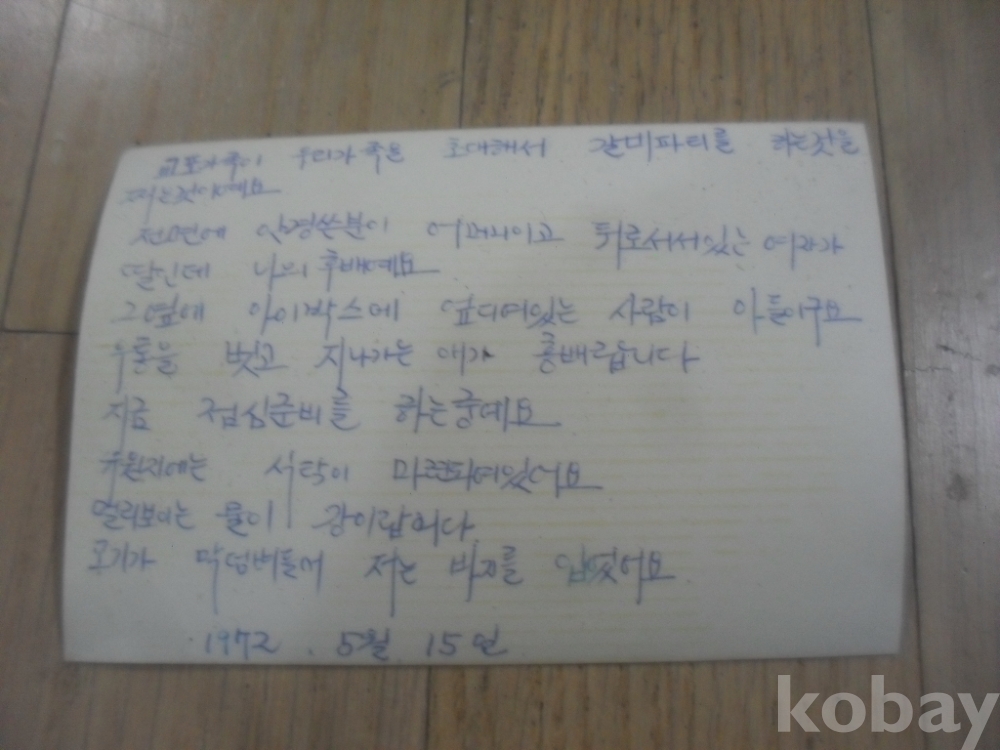 교포가족이 우리가족을 초대해서 갈비파티를 하는것을
찍는것이예요
전면에 안경쓴분이 어머니이고 뒤로서서있는 여자가
딸인데 나의 후배예요
그옆에 아이박스에 엎디여있는 사람이 아들이구요
우통을 벗고 지나가는 애가 홍배랍니다
지금 점심준비를 하는중예요
유원지에는 식탁이 마련되여있어요
멀리보이는 물이 강이랍니다
모기가 막덤벼들어 저는 바지를 입었어요
1972. 5월 15일
kobay